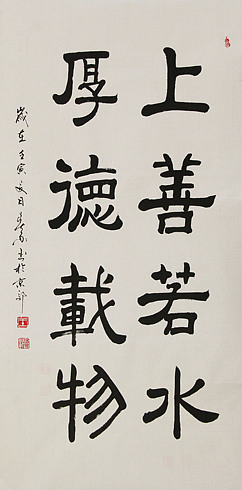 上善若水
厚德載物
歲在壬寅
書於京